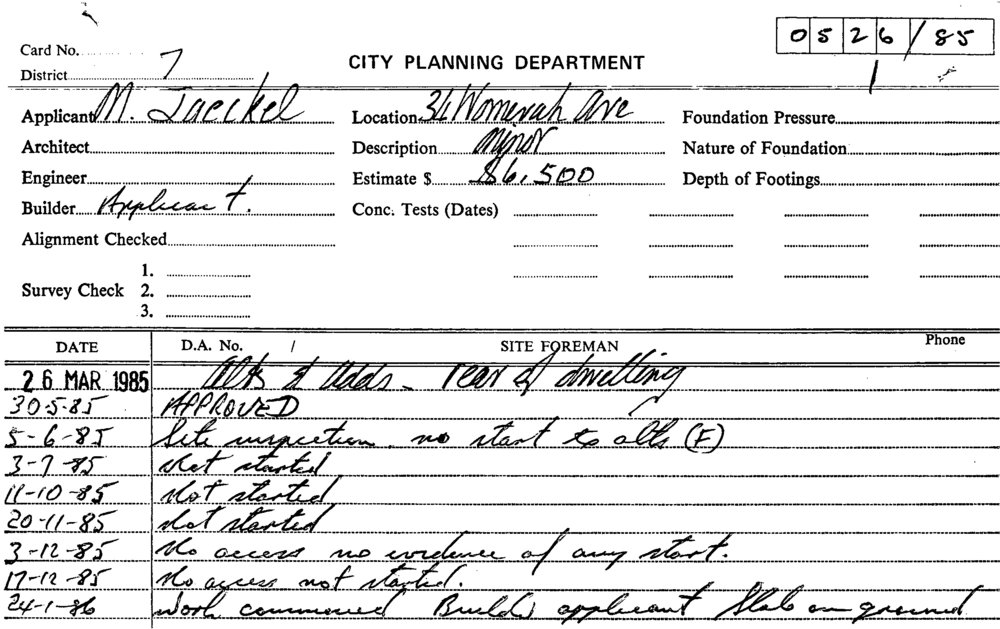 0526/85
Card No.
District 7
CITY PLANNING DEPARTMENT
Applicant M. Jaeckel
Location 34 Womerah Ave
Foundation Pressure
Architect
Description Minor
Nature of Foundation
Engineer
Estimate $ $6,500
Depth of Footings
Builder Applicant.
Conc. Tests (Dates)
Alignment Checked
1.
Survey Check 2.
3.
DATE D.A. No. / SITE FOREMAN Phone
26 MAR 1985 Alts & Adds - rear of dwelling
30-5-85 APPROVED
5-6-85 Site inspection no start to alts (F)
3-7-85 Not started
11-10-85 Not started
20-11-85 Not started
3-12-85 No access no evidence of any start.
17-12-85 No access not started.
24-1-86 Work commenced Builds applicant Slab on ground